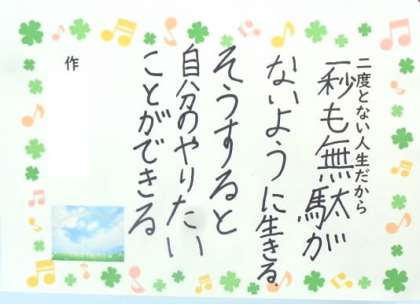 二度とない人生だから
一秒も無駄が
ないように生きる。
そうすると
自分のやりたい
ことができる
作